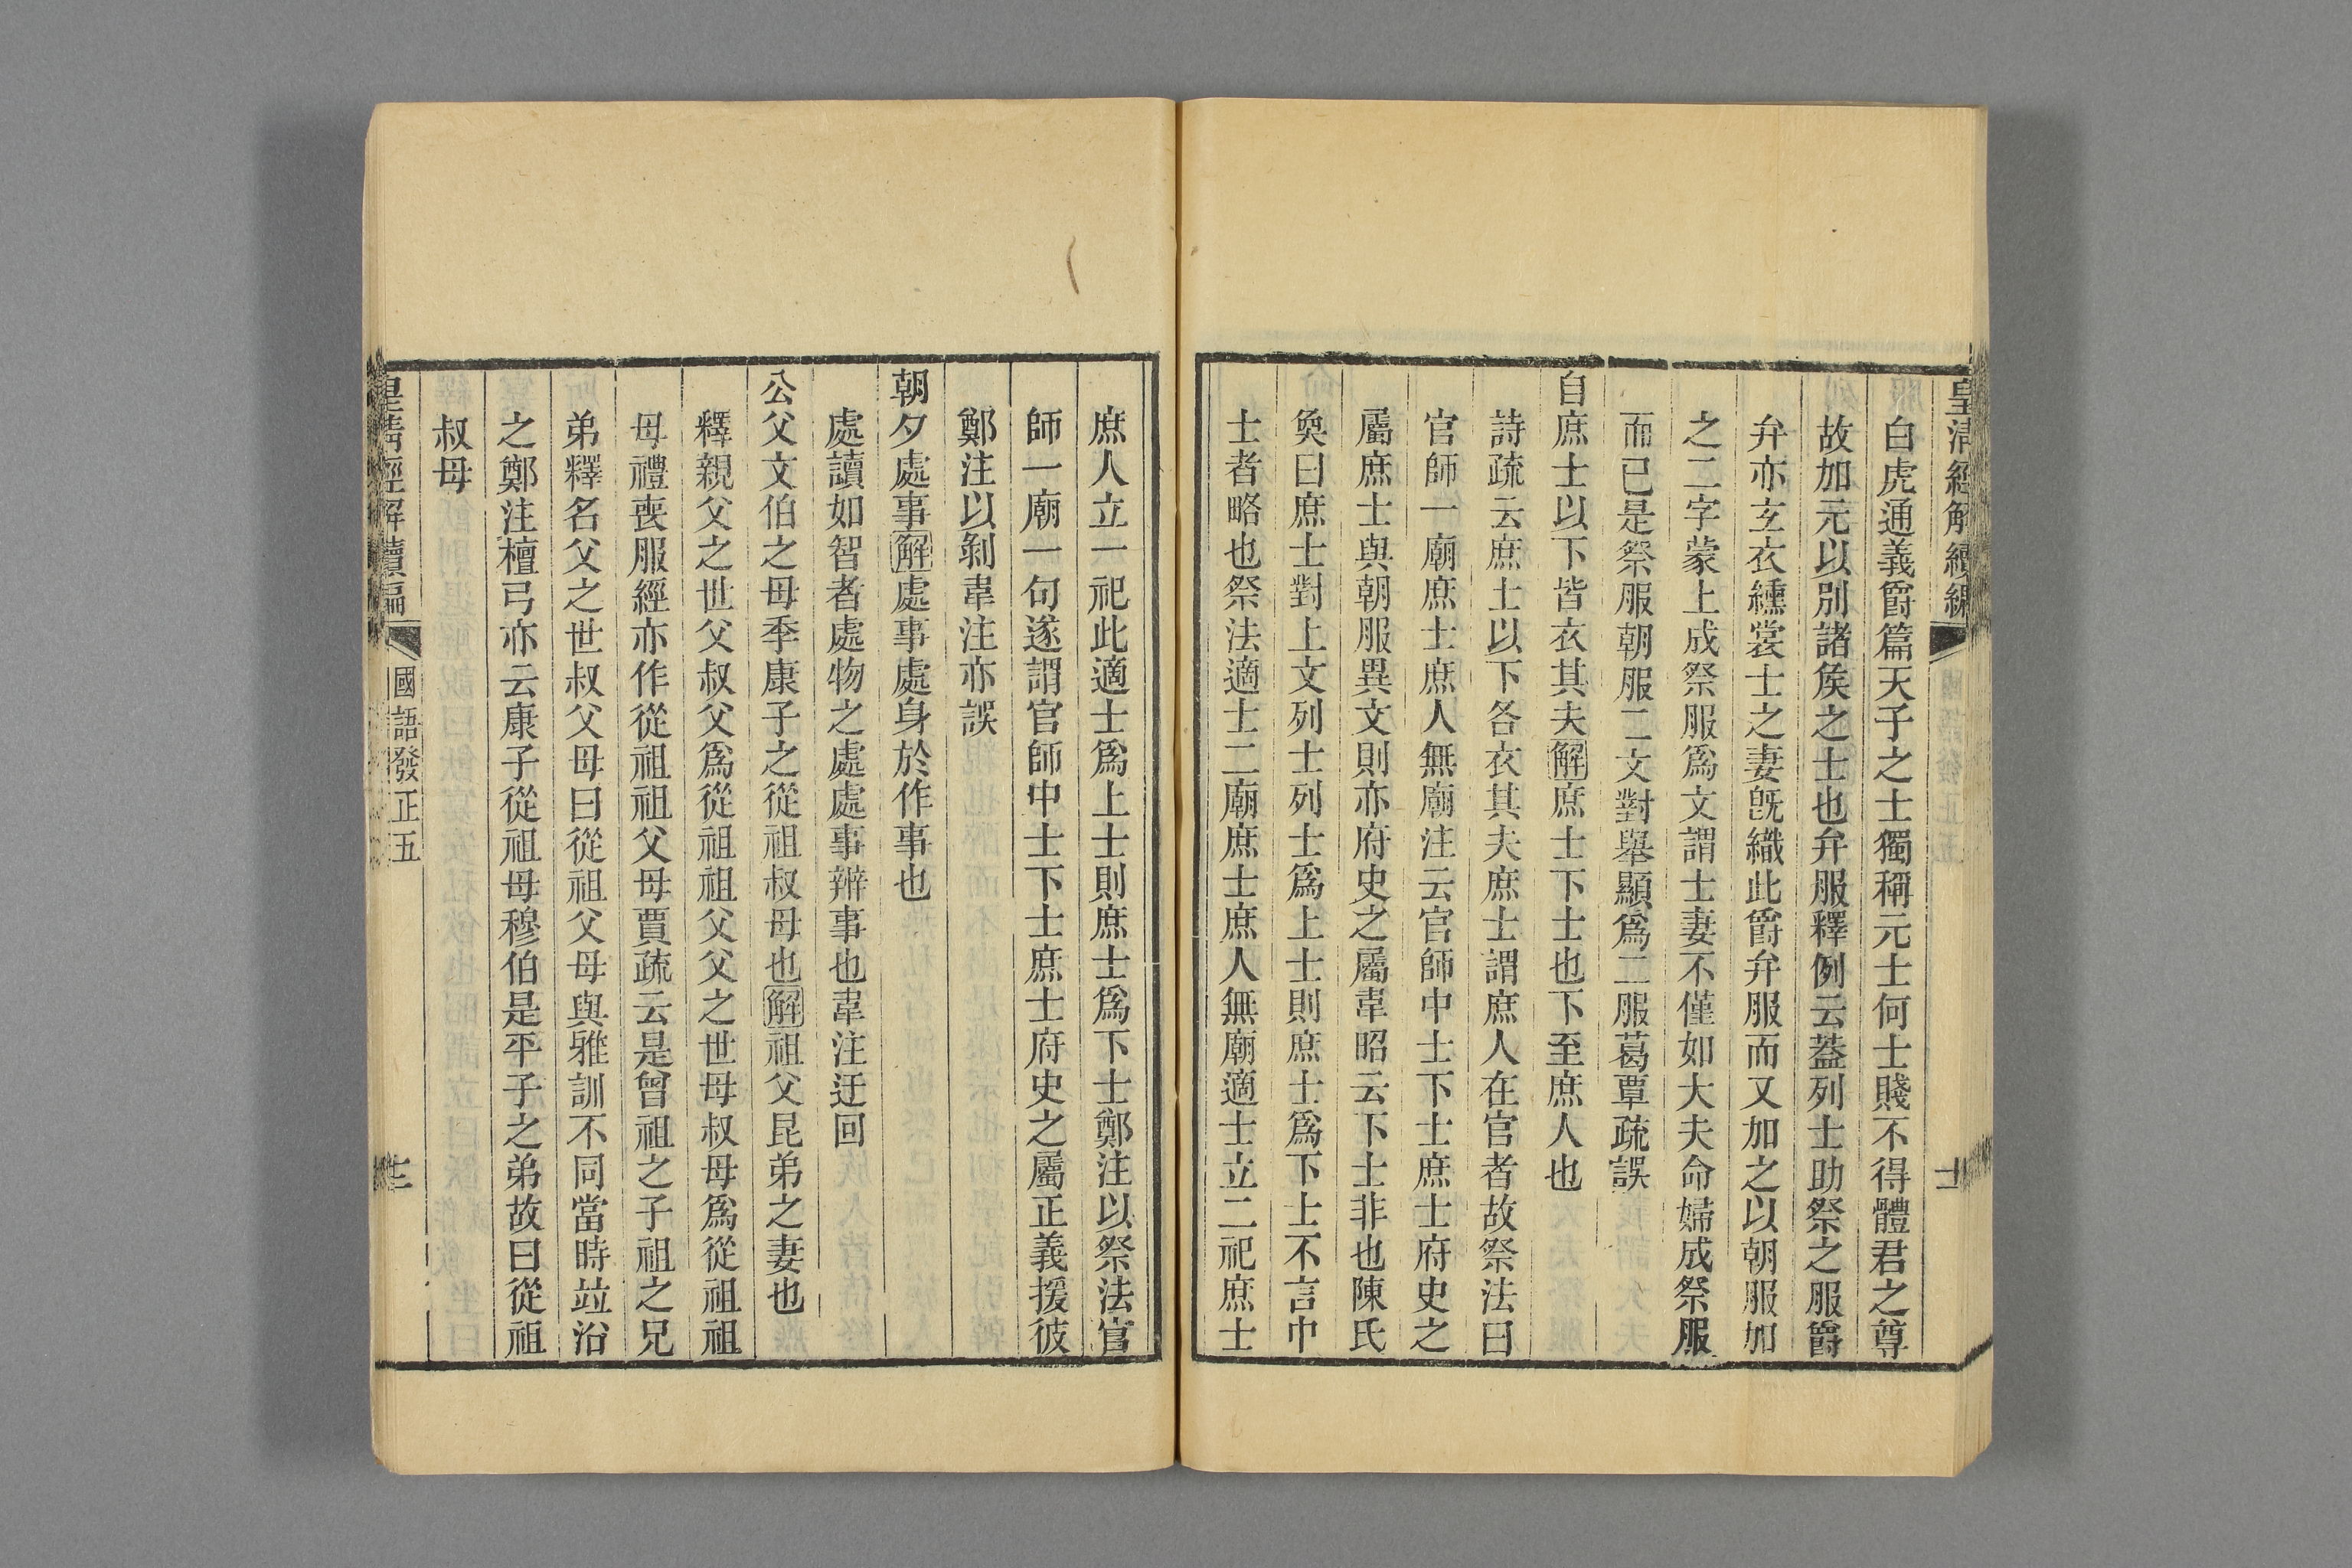 皇清經解續編
白虎通義爵篇天子之士獨稱元士何士賤不得體君之尊
故加元以別諸矦之士也弁服釋例云葢列士助祭之服爵
弁亦玄衣纁裳士之妻旣織此爵弁服而又加之以朝服加
之二字蒙上成祭服爲文謂士妻不僅如大夫命婦成祭服
而已是祭服朝服二文對舉顯爲二服葛覃疏誤
自庶士以下皆衣其夫解庶士下士也下至庶人也
詩疏云庶士以下各衣其夫庶士謂庶人在官者故祭法曰
官師一廟庶士庶人無廟注云官師中士下士庶士府史之
屬庶士與朝服異文則亦府史之屬韋昭云下士非也陳氏
奐曰庶士對上文列士列士爲上士則庶士爲下上不言中
士者略也祭法適士二廟庶士庶人無廟適士立二祀庶士
庶人立一祀此適士爲上士則庶士爲下士鄭注以祭法官
師一廟一句遂謂官師中士下士庶士府史之屬正義援彼
鄭注以剝韋注亦誤
朝夕處事解處事處身於作事也
處讀如智者處物之處處事辨事也韋注迂回
公父文伯之母季康子之從祖叔母也解祖父昆弟之妻也
釋親父之世父叔父爲從祖祖父父之世母叔母爲從祖祖
母禮喪服經亦作從祖祖父母賈疏云是曾祖之子祖之兄
弟釋名父之世叔父母曰從祖父母與雅訓不同當時竝㳂
之鄭注檀弓亦云康子從祖母穆伯是平子之弟故曰從祖
叔母
皇清經解續編
國語發正五